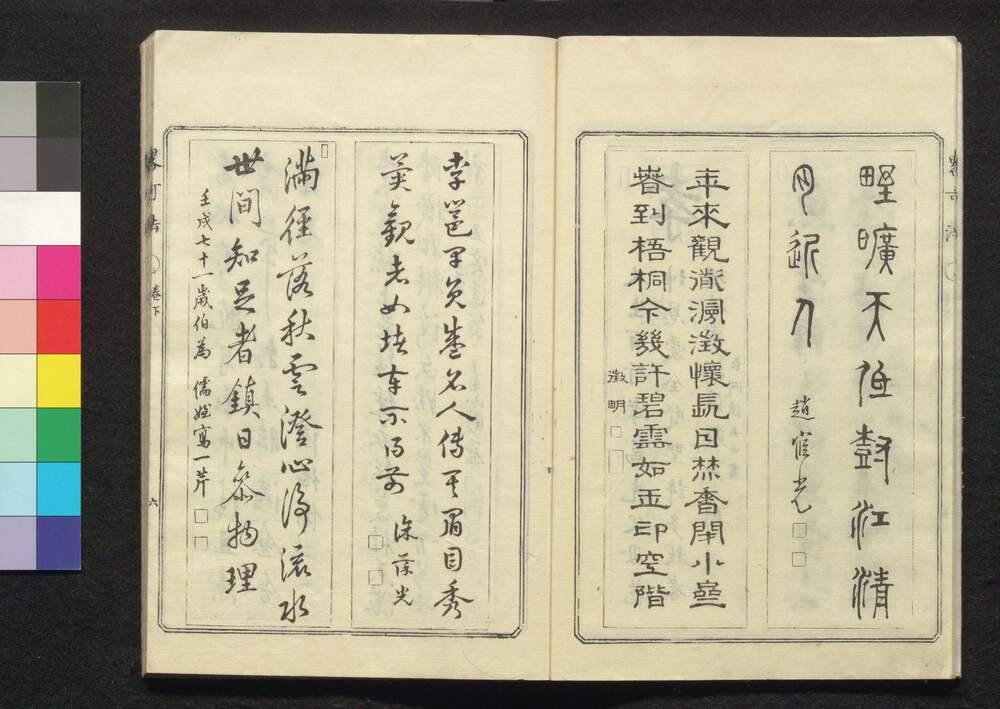 野曠天低樹江清
月近人
趙宧光
年來觀道漏澂懷長日焚香閉小齋
春到梧桐今幾許碧雲如玉印空階
徵明
李邕平負盛名人傳其眉目秀
異觀者如堵車不得前
徐葆光
滿徑落秋雲澄心淨流水
世間知足者鎮日參物理
壬戌七十一歲伯為儒姪寫一芹
卷下
六